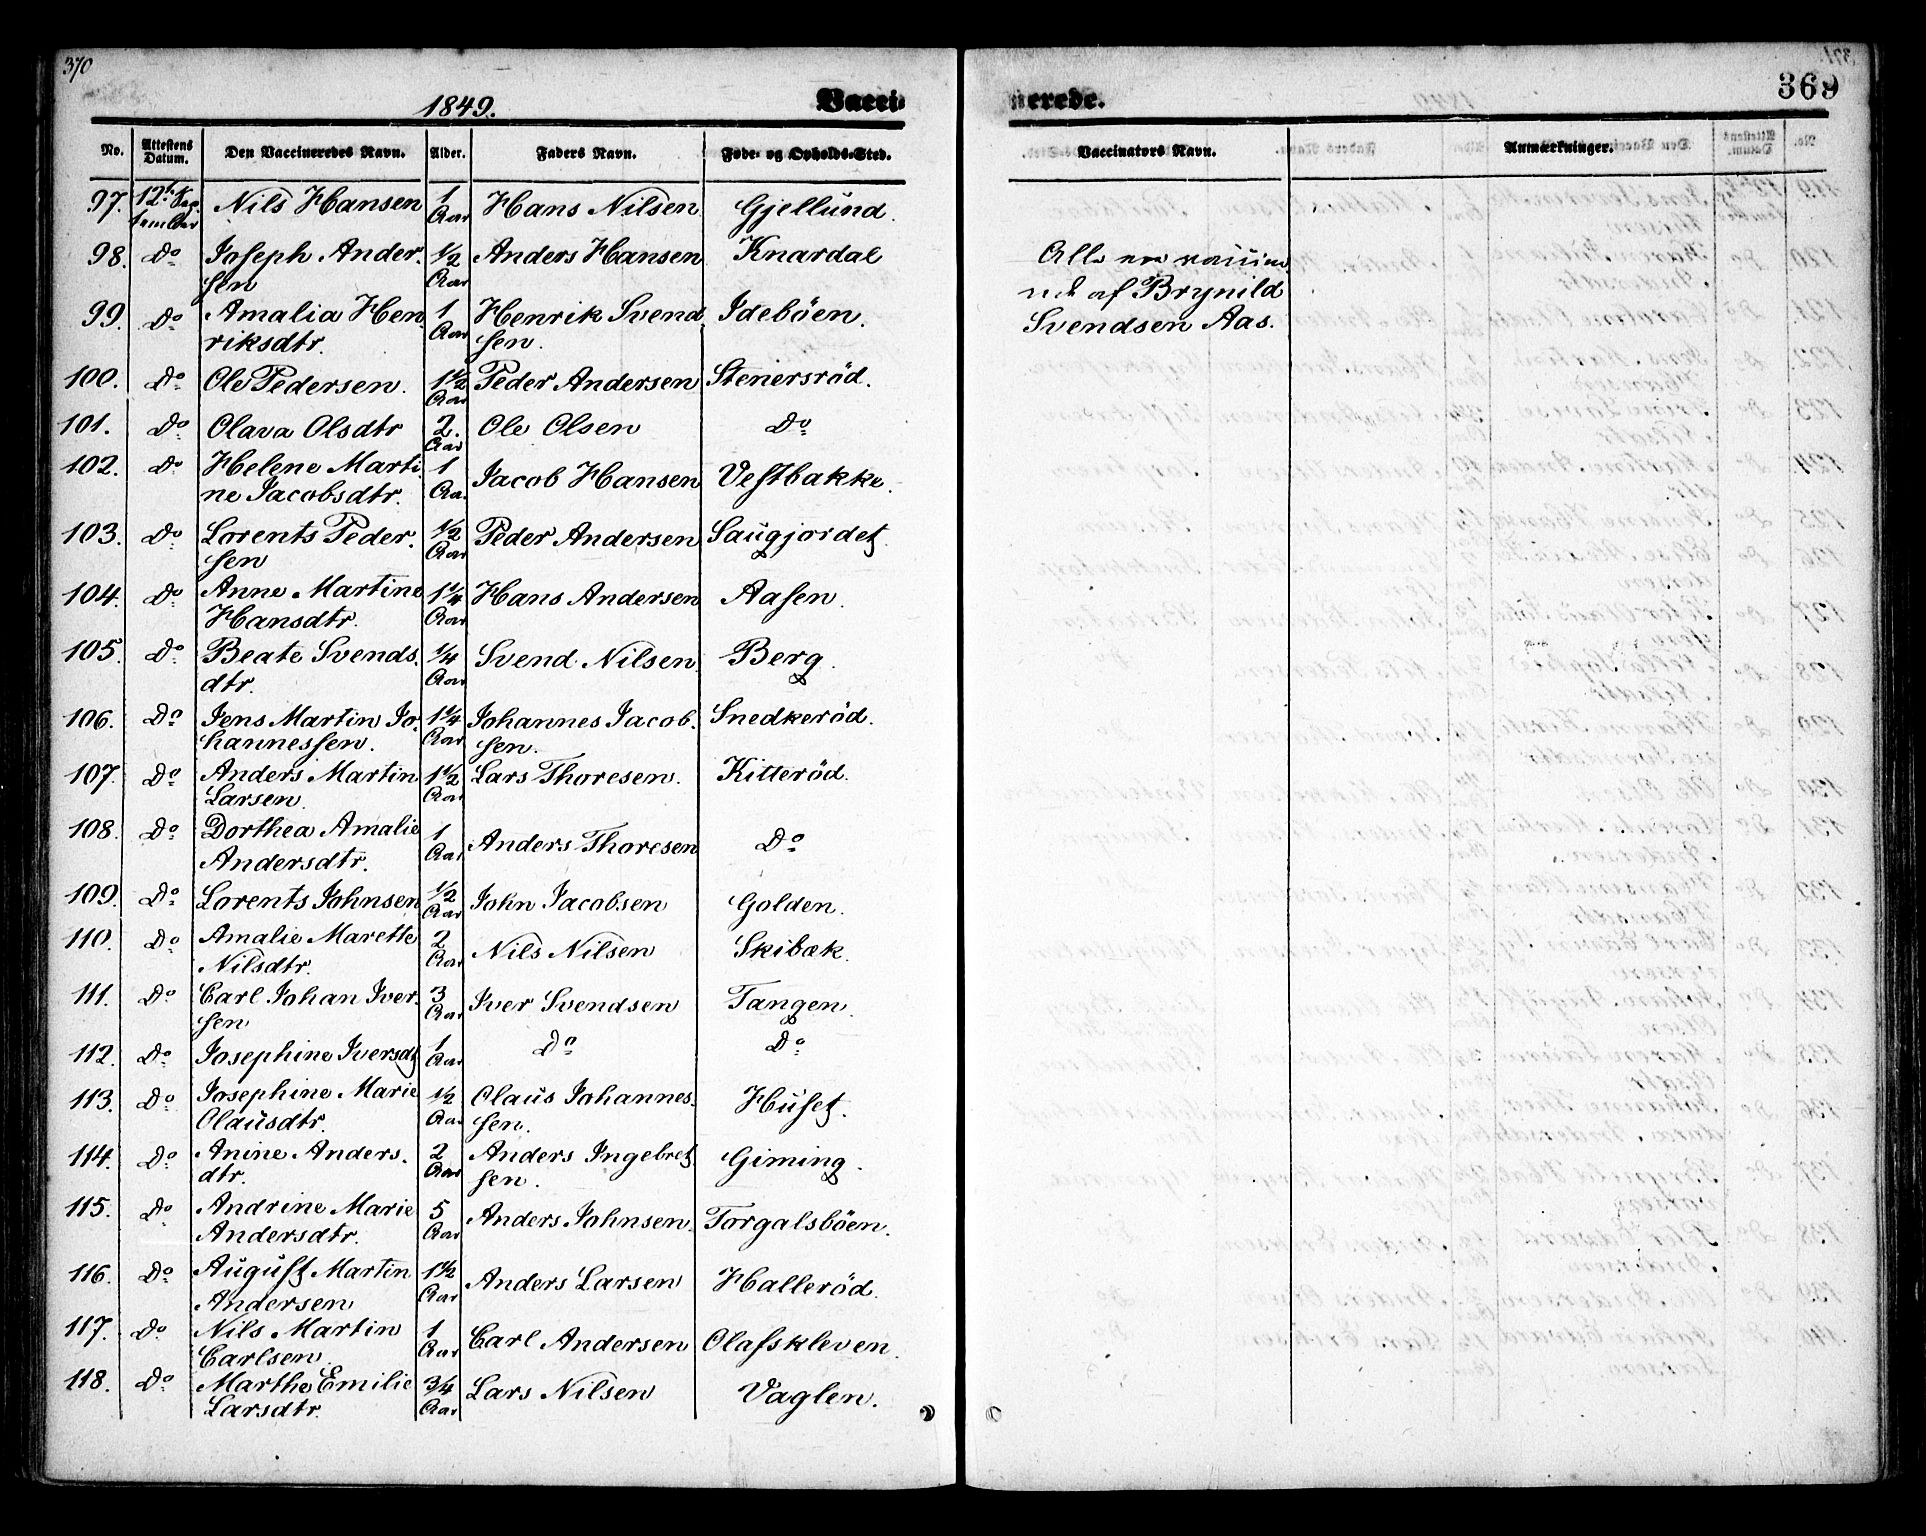 370
369
1849.
Vacci-
nerede.
No. Attestens Datum. Den Vaccineredes Navn. Alder. Faders Navn. Føde- og Opholds-Sted. Vaccinators Navn. Anmærkninger.
97. 12t Sep- Nils Hansen 1 Hans Nilsen Gjellund.
tember Aar
98. Do Joseph Ander- 1/2 Anders Hansen Knardal Alle ere vaccine-
sen Aar red af Brynild
99. Do Amalia Hen- 1 Henrik Svend- Idebøen. Svendsen Aas.
riksdtr. Aar sen.
100. Do Ole Pedersen. 1 1/2 Peder Andersen Stenersrød.
Aar
101. Do Olava Olsdtr 2. Ole Olsen Do
Aar
102. Do Helene Marti- 1 Jacob Hansen Vestbakke.
ne Jacobsdtr. Aar
103. Do Lorents Peder- 1/2 Peder Andersen Saugjordet
sen Aar
104. Do Anne Martine 1 1/4 Hans Andersen Aasen.
Hansdtr. Aar
105. Do Beate Svends- 1/4 Svend Nilsen Berg.
dtr. Aar
106. Do Jens Martin Jo- 1 1/4 Johannes Jacob- Snedkerød.
hannessen. Aar sen.
107. Do Anders Martin 1 1/2 Lars Thoresen. Kitterød.
Larsen. Aar
108. Do Dorthea Amalie 1 Anders Thoresen Do
Andersdtr. Aar
109. Do Lorents Johnsen 1/2 John Jacobsen Golden.
Aar
110. Do Amalie Marette 2 Nils Nilsen Skibæk.
Nilsdtr. Aar
111. Do Carl Johan Iver- 3 Iver Svendsen Tangen.
sen Aar
112. Do Josephine Iversdt 1 Do Do
Aar
113. Do Josephine Marie 1/2 Olaus Johannes- Huset.
Olausdtr. Aar sen.
114. Do Anine Anders- 2 Anders Ingebret- Giming.
dtr. Aar sen.
115. Do Andrine Marie 5 Anders Johnsen. Torgalsbøen.
Andersdtr. Aar
116. Do August Martin 1 1/2 Anders Larsen Hallerød.
Andersen Aar
117. Do Nils Martin 1 Carl Andersen Olafskleven.
Carlsen Aar
118. Do Marthe Emilie 3/4 Lars Nilsen Vaglen.
Larsdtr. Aar